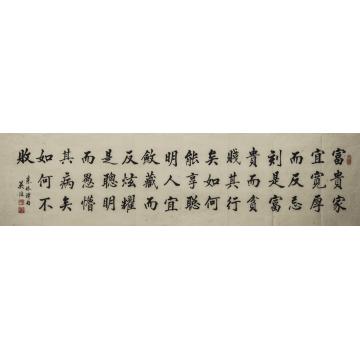 富貴家
宜寬厚
而反忌
刻是富
貴而貧
賤其行
矣如何
能享聰
明人宜
斂藏而
反炫耀
是聰明
而愚懵
其病矣
如何不
敗
菜根譚句